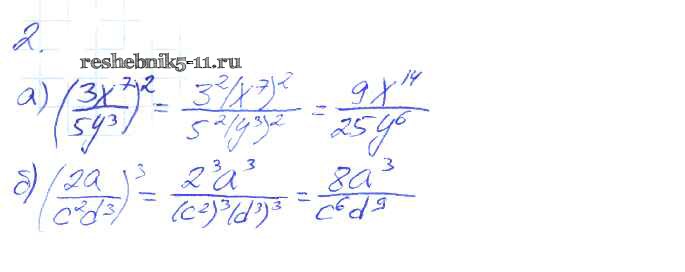 2.
reshebnik5-11.ru
а) (3x⁷/5y³)² = 3²(x⁷)²/5²(y³)² = 9x¹⁴/25y⁶
б) (2a/c²d³)³ = 2³a³/(c²)³(d³)³ = 8a³/c⁶d⁹